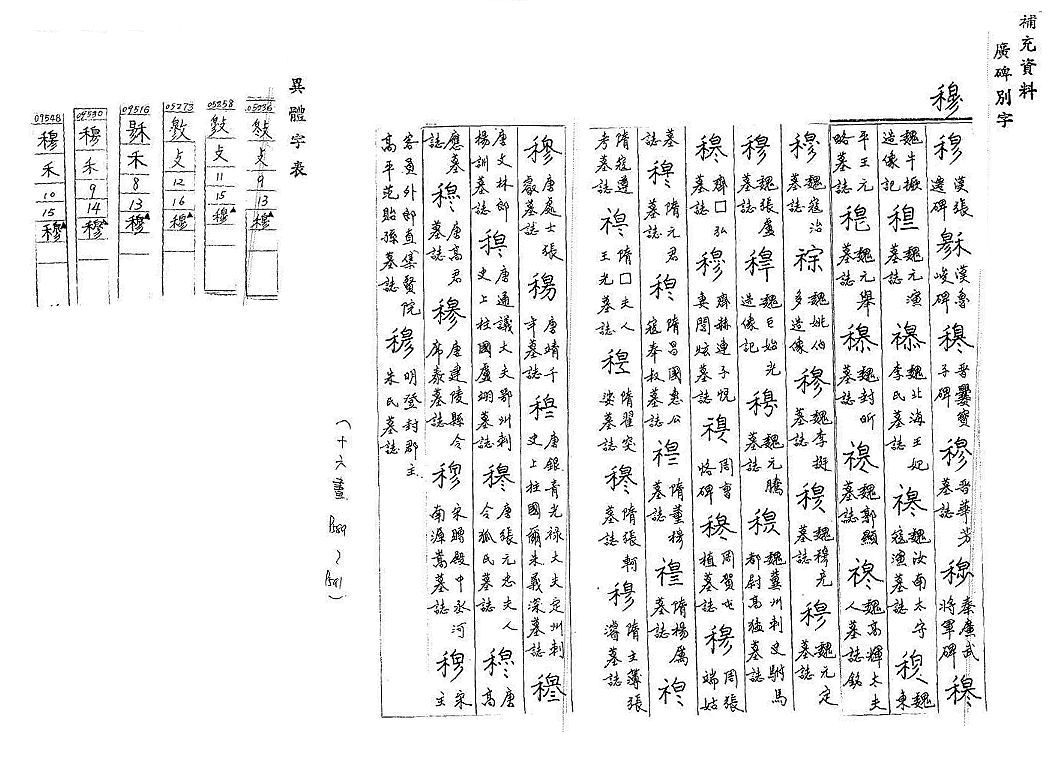 補充資料
廣碑別字
穆
穆 漢張遷碑 漢魯峻碑 穆 晉爨寶子碑 穆 晉華芳墓誌 穆 秦廣武將軍碑 穆
魏牛橛造像記 穆 魏元演墓誌 穆 魏北海王妃李氏墓誌 穆 魏汝南太守寇演墓誌 穆 魏東
平王元略墓誌 穆 魏元舉墓誌 穆 魏封昕墓誌 穆 魏郭顯墓誌 穆 魏高輝太夫人墓誌銘
穆 魏寇治墓誌 魏姚伯多造像 穆 魏李挺墓誌 穆 魏穆亮墓誌 穆 魏元定墓誌
穆 魏張盧墓誌 穆 魏巨始光造像記 穆 魏元騰墓誌 穆 魏冀州刺史駙馬都尉高猛墓誌
穆 齊□弘 穆 齊赫連子悅妻閭炫墓誌 穆 周曹恪碑 穆 周賀屯植墓誌 穆 周張端姑
墓誌 穆 隋元君墓誌 穆 隋昌國惠公寇奉叔墓誌 穆 隋董穆墓誌 穆 隋楊厲墓誌 穆
隋寇遵考墓誌 穆 隋□夫人王光墓誌 穆 隋翟突娑墓誌 穆 隋張軻墓誌 穆 隋主簿張濬墓誌
穆 唐處士張叡墓誌 唐靖千年墓誌 穆 唐銀青光祿大夫定州刺史上柱國爾朱義深墓誌 穆
唐文林郎楊訓墓誌 穆 唐通議大夫鄂州刺史上柱國盧翊墓誌 穆 唐張元忠夫人令狐氏墓誌 穆 唐高
應墓誌 穆 唐高君墓誌 穆 唐建陵縣令席泰墓誌 穆 宋贈殿中丞河南源墓誌 穆 宋主
客員外郎直集賢院高平范貽孫墓誌 穆 明登封郡主朱氏墓誌
(十六畫 P589~P591)
異體字表
05236 攴 9 13 穆▲
05258 攴 11 15 穆▲
05273 攴 12 16 穆▲
09516 禾 8 13 穆▲
09530 穆 禾 9 14 穆▲
09548 穆 禾 10 15 穆▲